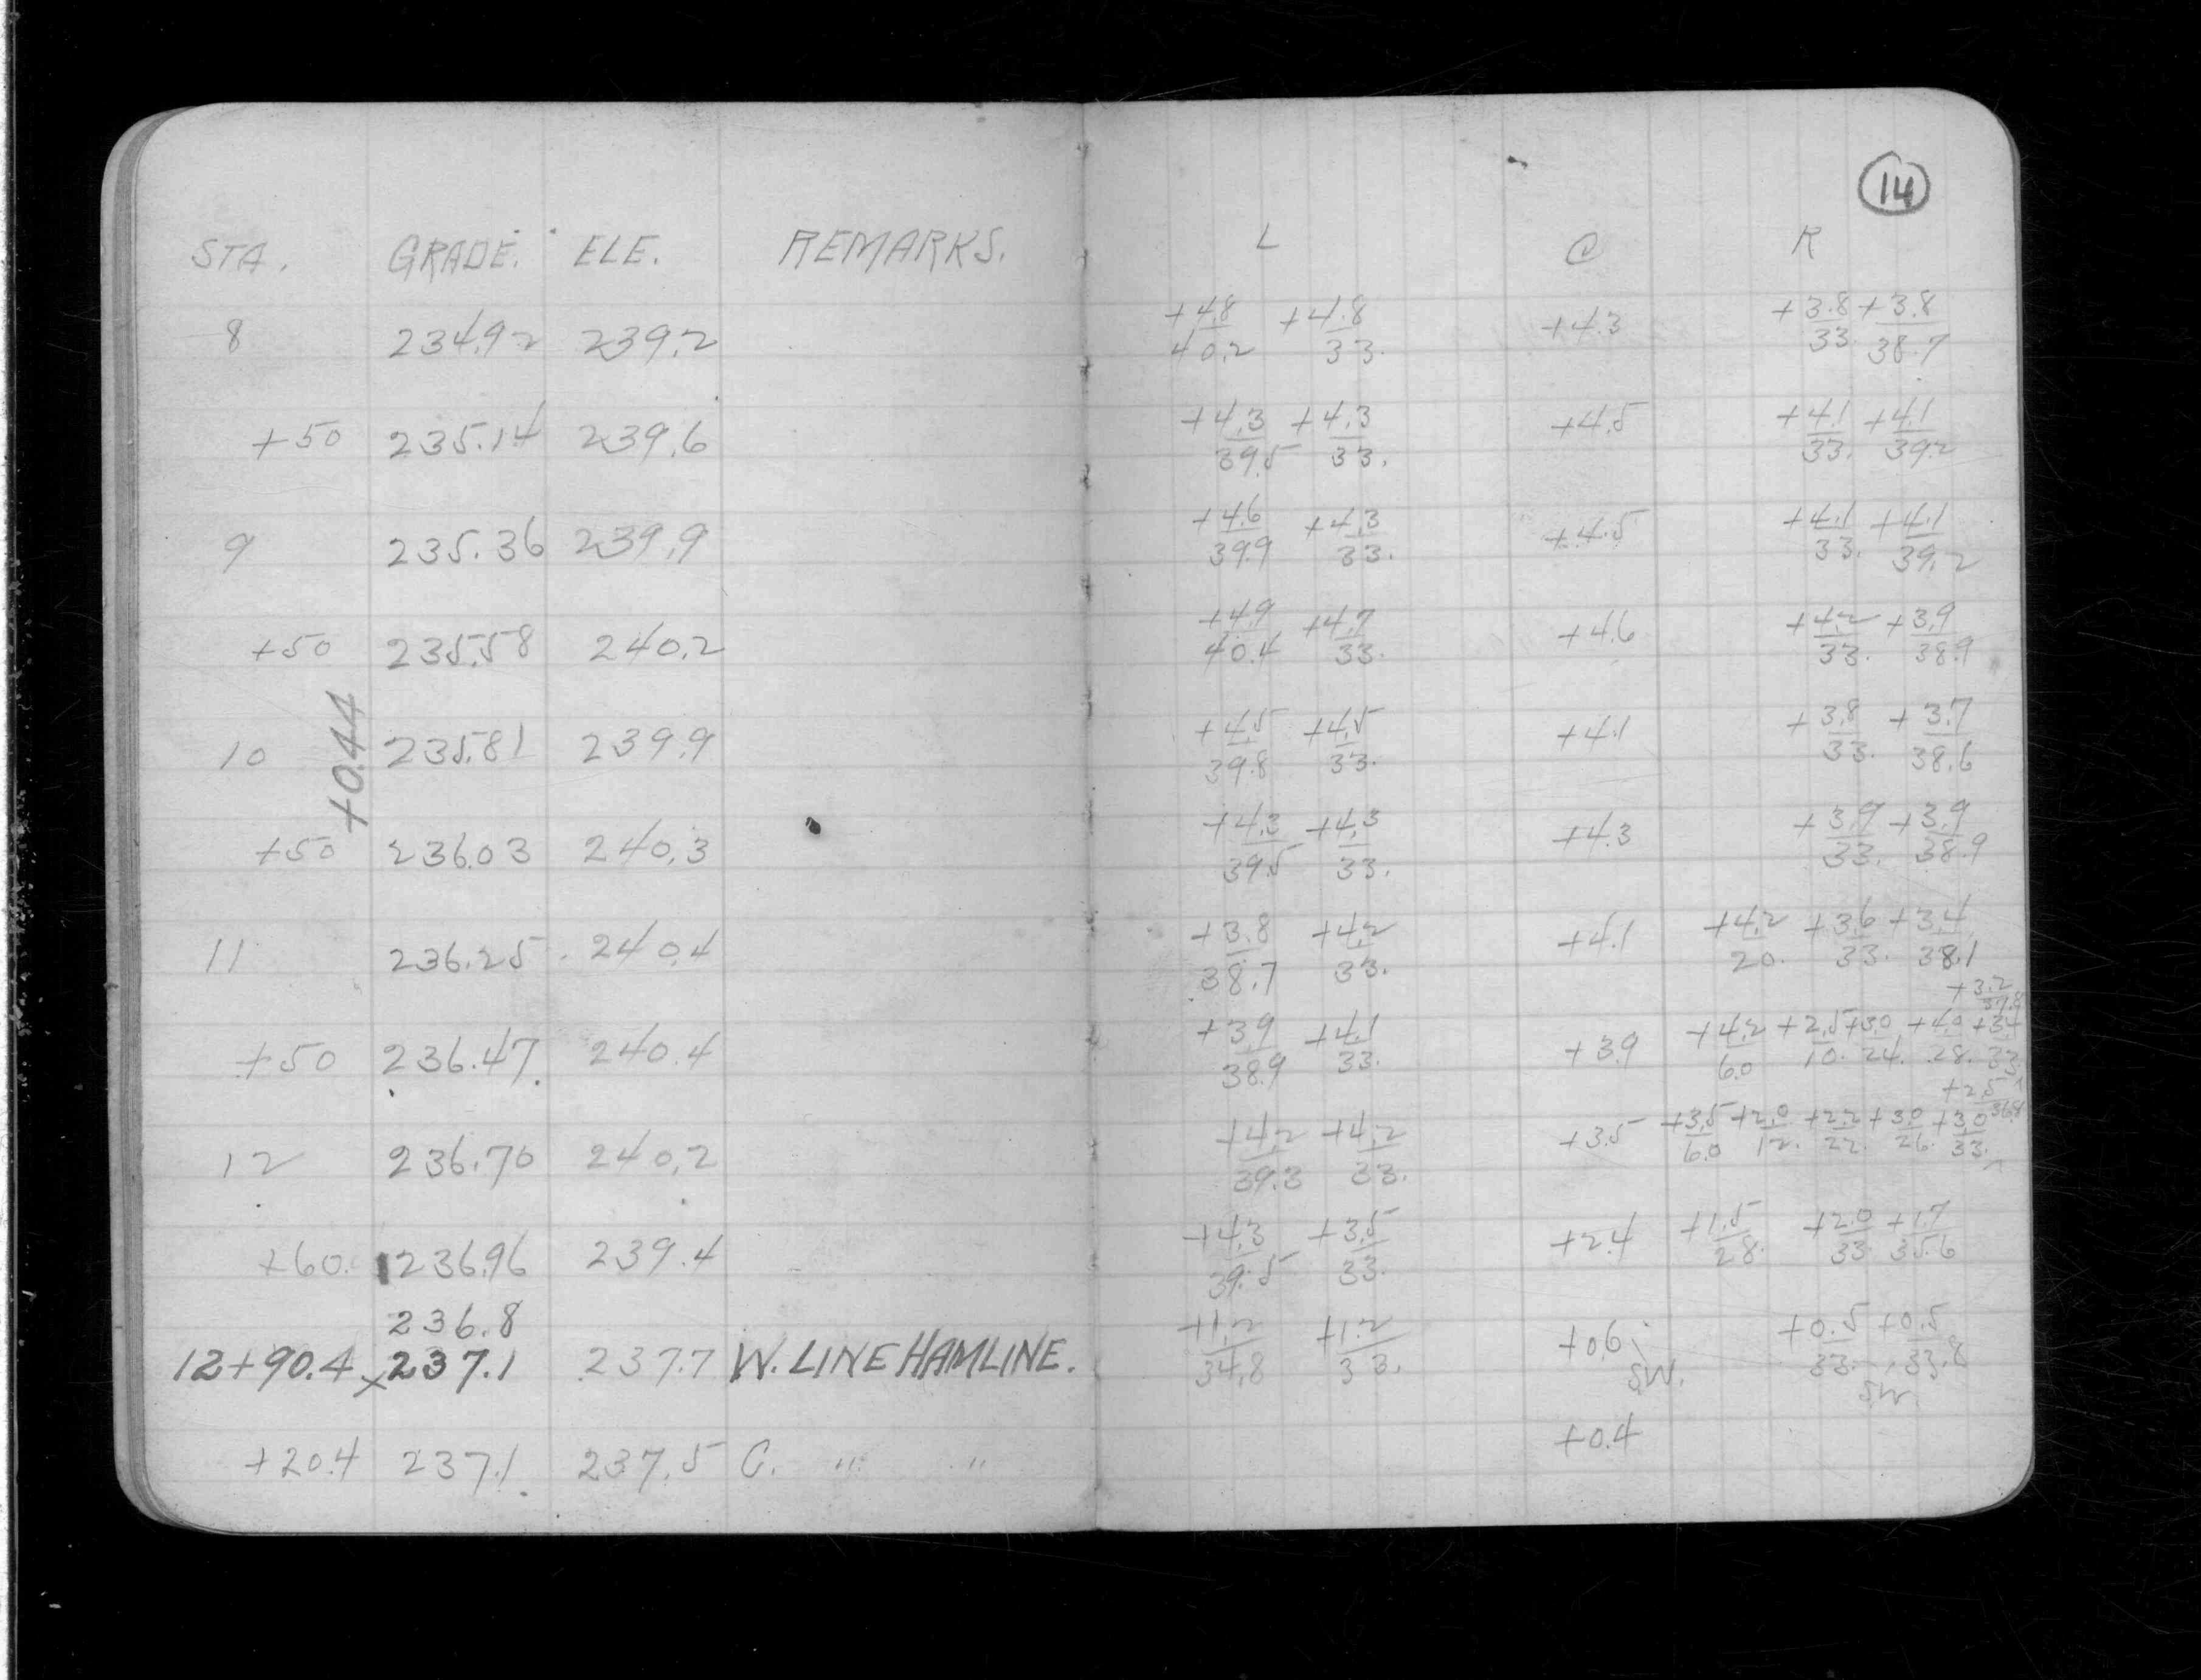 14
STA. GRADE. ELE. REMARKS. L C R
8 234.92 239.2 +4.8/40.2 +4.8/33. +4.3 +3.8/33. +3.8/38.7
+50 235.14 239.6 +4.3/39.5 +4.3/33. +4.5 +4.1/33. +4.1/39.2
9 235.36 239.9 +4.6/39.9 +4.3/33. +4.5 +4.1/33. +4.1/39.2
+50 235.58 240.2 +4.9/40.4 +4.7/33. +4.6 +4.2/33. +3.9/38.9
+0.44
10 235.81 239.9 +4.5/39.8 +4.5/33. +4.1 +3.8/33. +3.7/38.6
+50 236.03 240.3 +4.3/39.5 +4.3/33. +4.3 +3.9/33. +3.9/38.9
11 236.25 240.4 +3.8/38.7 +4.2/33. +4.1 +4.2/20. +3.6/33. +3.4/38.1
+3.2/37.8
+50 236.47 240.4 +3.9/38.9 +4.1/33. +3.9 +4.2/6.0 +2.5/10. +3.0/24. +4.0/28. +3.4/33.
+2.5/36.8
12 236.70 240.2 +4.2/39.3 +4.2/33. +3.5 +3.5/6.0 +2.0/12. +2.2/22. +3.0/26. +3.0/33.
+60. 236.96 239.4 +4.3/39.5 +3.5/33. +2.4 +1.5/28. +2.0/33. +1.7/35.6
236.8
12+90.4 x237.1 237.7 W. LINE HAMLINE. +1.2/34.8 +1.2/33. +0.6 +0.5/33. +0.5/33.8
SW. SW.
+20.4 237.1 237.5 C. " " +0.4